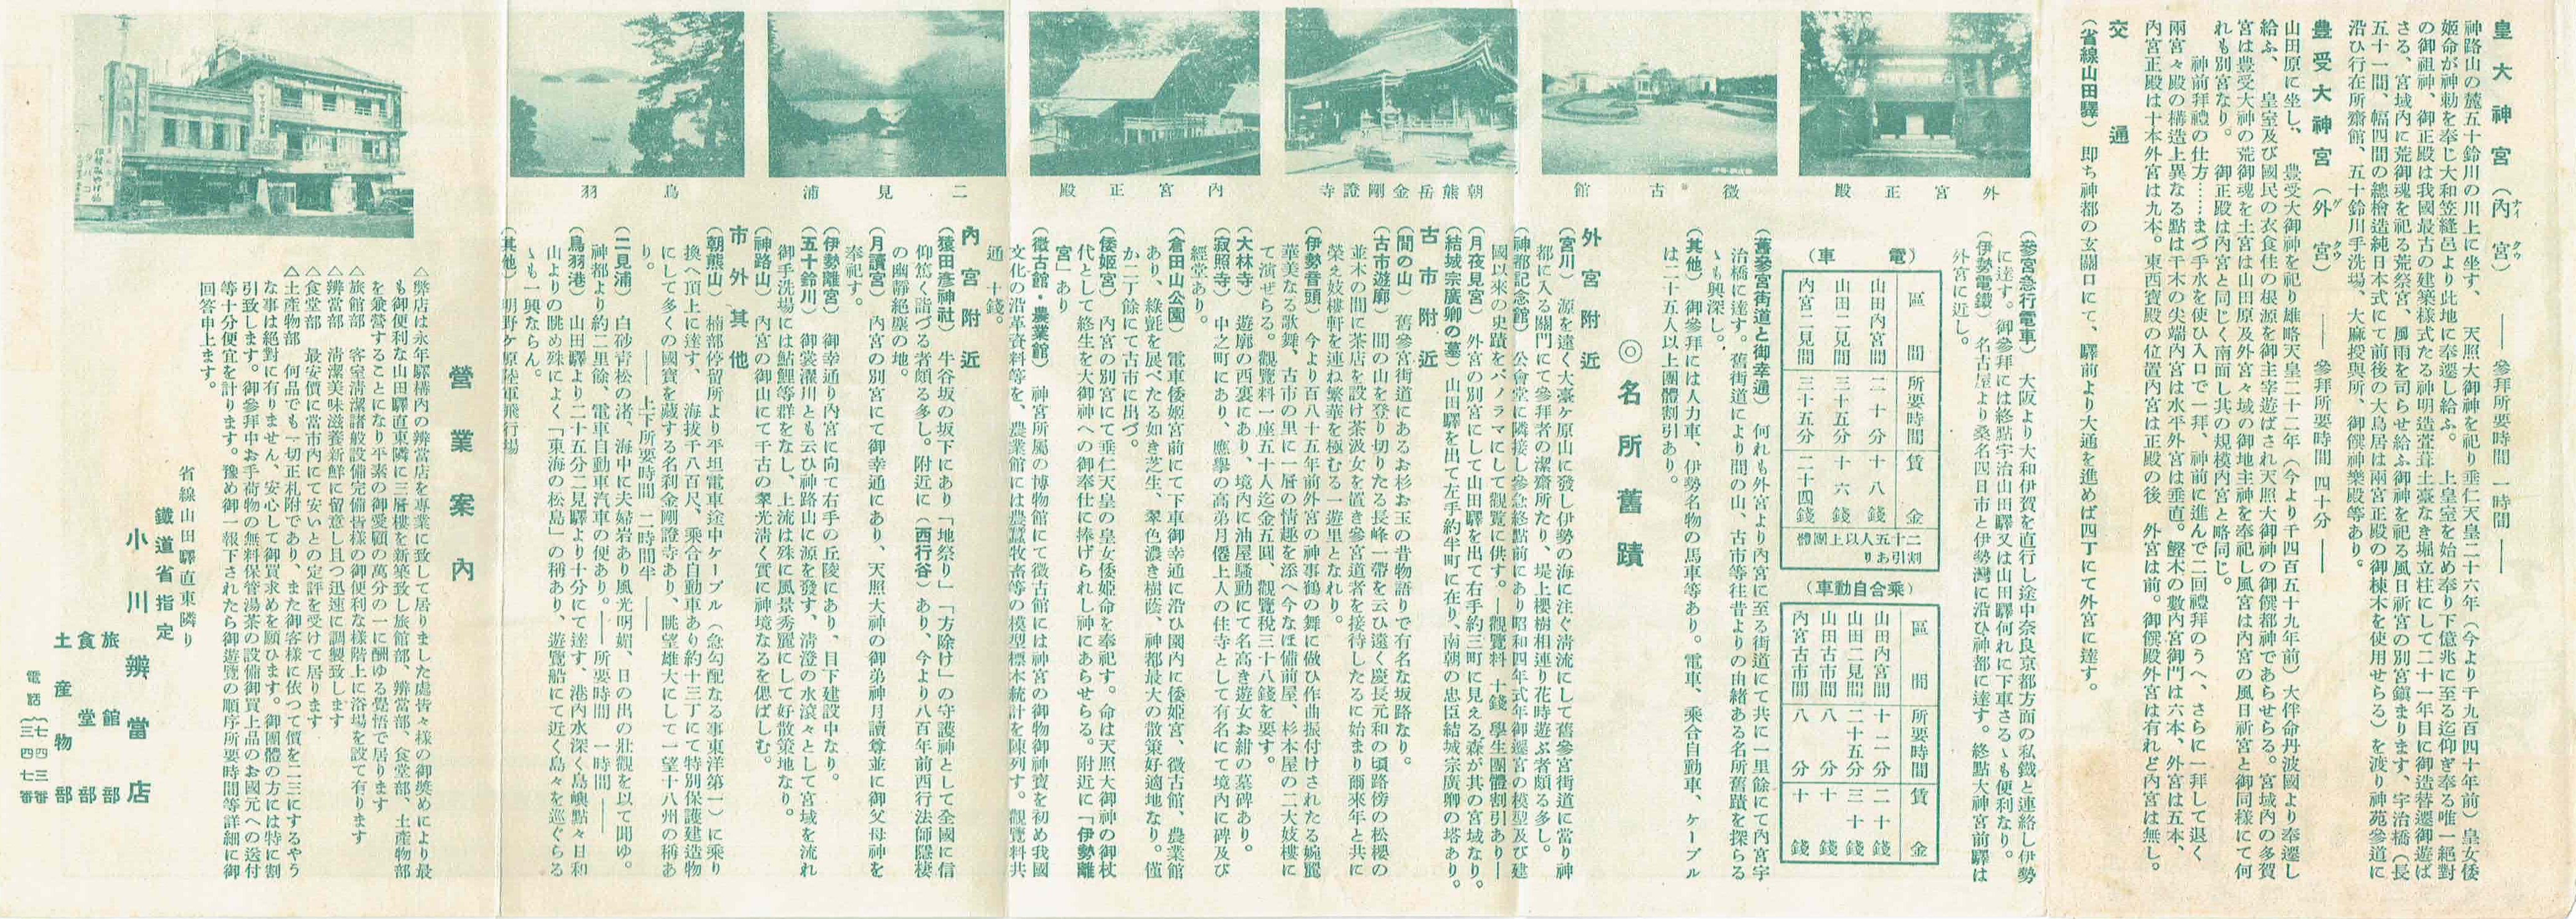 皇大神宮（內宮）　―― 參拜所要時間 一時間 ――
ナイクウ
神路山の麓五十鈴川の川上に坐す、天照大御神を祀り垂仁天皇二十六年（今より千九百四十年前）皇女倭
姬命が神勅を奉じ大和笠縫邑より此地に奉遷し給ふ。上皇室を始め奉り下億兆に至る迄仰ぎ奉る唯一絕對
の御祖神、御正殿は我國最古の建築樣式たる神明造萱葺土臺なき堀立柱にして二十一年目に御造替遷御遊ば
さる、宮域內に荒御魂を祀る荒祭宮、風雨を司らせ給ふ御神を祀る風日祈宮の別宮鎭まります、宇治橋（長
五十一間、幅四間の總檜造純日本式にて前後の大鳥居は兩宮正殿の御棟木を使用せらる）を渡り神苑參道に
沿ひ行在所齋館、五十鈴川手洗場、大麻授與所、御饌神樂殿等あり。
豐受大神宮（外宮）　―― 參拜所要時間 四十分 ――
ゲクウ
山田原に坐し、豐受大御神を祀り雄略天皇二十二年（今より千四百五十九年前）大佯命丹波國より奉遷し
給ふ、皇室及び國民の衣食住の根源を御主宰遊ばされ天照大御神の御饌都神であらせらる。宮域內の多賀
宮は豐受大神の荒御魂を土宮は山田原及外宮々域の御地主神を奉祀し風宮は內宮の風日祈宮と御同樣にて何
れも別宮なり。御正殿は內宮と同じく南面し其の規模內宮と略同じ。
神前拜禮の仕方……まづ手水を使ひ入口で一拜、神前に進んで二回禮拜のうへ、さらに一拜して退く
兩宮々殿の構造上異なる點は千木の尖端內宮は水平外宮は垂直。鰹木の數內宮御門は六本、外宮は五本、
內宮正殿は十本外宮は九本。東西寶殿の位置內宮は正殿の後　外宮は前。御饌殿外宮は有れど內宮は無し。
交通
（省線山田驛）卽ち神都の玄關口にて、驛前より大通を進めば四丁にて外宮に達す。
（參宮急行電車）大阪より大和伊賀を直行し途中奈良京都方面の私鐵と連絡し伊勢
に達す。御參拜には終點宇治山田驛又は山田驛何れに下車さるゝも便利なり。
（伊勢電鐵）名古屋より桑名四日市と伊勢灣に沿ひ神都に達す。終點大神宮前驛は
外宮に近し。
（電車）
區間　所要時間　賃金
山田內宮間　二十分　十八錢
山田二見間　三十五分　十六錢
內宮二見間　三十五分　二十四錢
二十五人以上團體割引あり
（乘合自動車）
區間　所要時間　賃金
山田內宮間　十二分　二十錢
山田二見間　二十五分　三十錢
山田古市間　八分　十錢
內宮古市間　八分　十錢
（舊參宮街道と御幸通）何れも外宮より內宮に至る街道にて共に一里餘にて內宮宇
治橋に達す。舊街道により間の山、古市等往昔よりの由緖ある名所舊蹟を探らる
ゝも興深し。
（其他）御參拜には人力車、伊勢名物の馬車等あり。電車、乘合自動車、ケーブル
は二十五人以上團體割引あり。
◎名所舊蹟
外宮附近
（宮川）源を遠く大臺ケ原山に發し伊勢の海に注ぐ淸流にして舊參宮街道に當り神
都に入る關門にて參拜者の潔齋所たり、堤上櫻樹相連り花時遊ぶ者頗る多し。
（神都記念館）公會堂に隣接し參急終點前にあり昭和四年式年御遷宮の模型及び建
國以來の史蹟をパノラマにして觀覽に供す。―觀覽料 十錢 學生團體割引あり―
（月夜見宮）外宮の別宮にして山田驛を出て右手約三町に見える森が其の宮域なり。
（結城宗廣卿の墓）山田驛を出て左手約半町に在り、南朝の忠臣結城宗廣卿の塔あり。
古市附近
（間の山）舊參宮街道にあるお杉お玉の昔物語りで有名な坂路なり。
（古市遊廓）間の山を登り切りたる長峰一帶を云ひ遠く慶長元和の頃路傍の松櫻の
並木の間に茶店を設け茶汲女を置き參宮道者を接待したるに始まり爾來年と共に
榮え妓樓軒を連ね繁華を極むる一遊里となれり。
（伊勢音頭）今より百八十五年前外宮の神事鶴の舞に倣ひ作曲振付けされたる婉麗
華美なる歌舞、古市の里に一層の情趣を添へ今なほ備前屋、杉本屋の二大妓樓に
て演ぜらる。觀覽料一座五十人迄金五圓、觀覽稅三十八錢を要す。
（大林寺）遊廓の西裏にあり、境內に油屋騷動にて名高き遊女お紺の墓碑あり。
（寂照寺）中之町にあり、應擧の高弟月僊上人の住寺として有名にて境內に碑及び
經堂あり。
（倉田山公園）電車倭姬宮前にて下車御幸通に沿ひ園內に倭姬宮、徵古館、農業館
あり、綠氈を展べたる如き芝生、翠色濃き樹蔭、神都最大の散策好適地なり。僅
か二丁餘にて古市に出づ。
（倭姬宮）內宮の別宮にて垂仁天皇の皇女倭姬命を奉祀す。命は天照大御神の御杖
代として終生を大御神への御奉仕に捧げられし神にあらせらる。附近に「伊勢離
宮」あり
（徵古館・農業館）神宮所屬の博物館にて徵古館には神宮の御物御神寶を初め我國
文化の沿革資料等を、農業館には農蠶牧畜等の模型標木統計を陳列す。觀覽料共
通　十錢。
內宮附近
（猿田彥神社）牛谷坂の坂下にあり「地祭り」「方除け」の守護神として全國に信
仰篤く詣づる者頗る多し。附近に（西行谷）あり、今より八百年前西行法師隱棲
の幽靜絕塵の地。
（月讀宮）內宮の別宮にて御幸通にあり、天照大神の御弟神月讀尊並に御父母神を
奉祀す。
（伊勢離宮）御幸通り內宮に向て右手の丘陵にあり、目下建設中なり。
（五十鈴川）御裳濯川とも云ひ神路山に源を發す、淸澄の水滾々として宮域を流れ
御手洗場には鮎鯉等群をなし、上流は殊に風景秀麗にして好散策地なり。
（神路山）內宮の御山にて千古の翠光淸く實に神境なるを偲ばしむ。
市外其他
（朝熊山）楠部停留所より平坦電車途中ケーブル（急勾配なる事東洋第一）に乘り
換へ頂上に達す、海拔千八百尺、乘合自動車あり約十三丁にて特別保護建造物
にして多くの國寶を藏する名刹金剛證寺あり、眺望雄大にして一望十八州の稱あ
り。　―― 上下所要時間 二時間半 ――
（二見浦）白砂靑松の渚、海中に夫婦岩あり風光明媚、日の出の壯觀を以て聞ゆ。
神都より約二里餘、電車自動車汽車の便あり。―― 所要時間　一時間 ――
（鳥羽港）山田驛より二十五分二見驛より十分にて達す、港內水深く島嶼點々日和
山よりの眺め殊によく「東海の松島」の稱あり、遊覽船にて近く島々を巡ぐらる
ゝも一興ならん。
（其他）明野ケ原陸軍飛行場
外宮正殿
徵古館
朝熊岳金剛證寺
內宮正殿
二見浦
鳥羽
營業案內
△弊店は永年驛構內の辨當店を專業に致して居りました處皆々樣の御奬めにより最
も御便利な山田驛直東隣に三層樓を新築致し旅館部、辨當部、食堂部、土產物部
を兼營することになり平素の御愛顧の萬分の一に酬ゆる覺悟で居ります
△旅館部　客室淸潔諸般設備完備皆樣の御便利な樣階上に浴場を設て有ります
△辨當部　淸潔美味滋養新鮮に留意し且つ迅速に調製致します
△食堂部　最安價に當市內にて安いとの定評を受けて居ります
△土產物部　何品でも一切正札附であり、また御客樣に依つて價を二三にするやう
な事は絕對に有りません、安心して御買求めを願ひます。御團體の方には特に割
引致します。御參拜中お手荷物の無料保管湯茶の設備御買上品のお國元への送付
等十分便宜を計ります。豫め御一報下されたら御遊覽の順序所要時間等詳細に御
回答申上ます。
省線山田驛直東隣り
鐵道省指定
小川辨當店
旅館部
食堂部
土產物部
電話（七四三番
三四七番